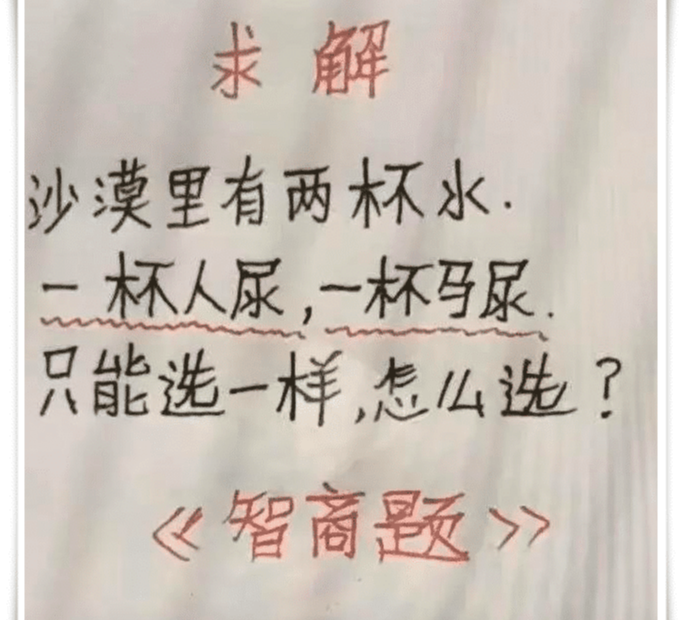 求 解
沙漠里有两杯水.
一杯人尿,一杯马尿.
只能选一样,怎么选?
《智商题》